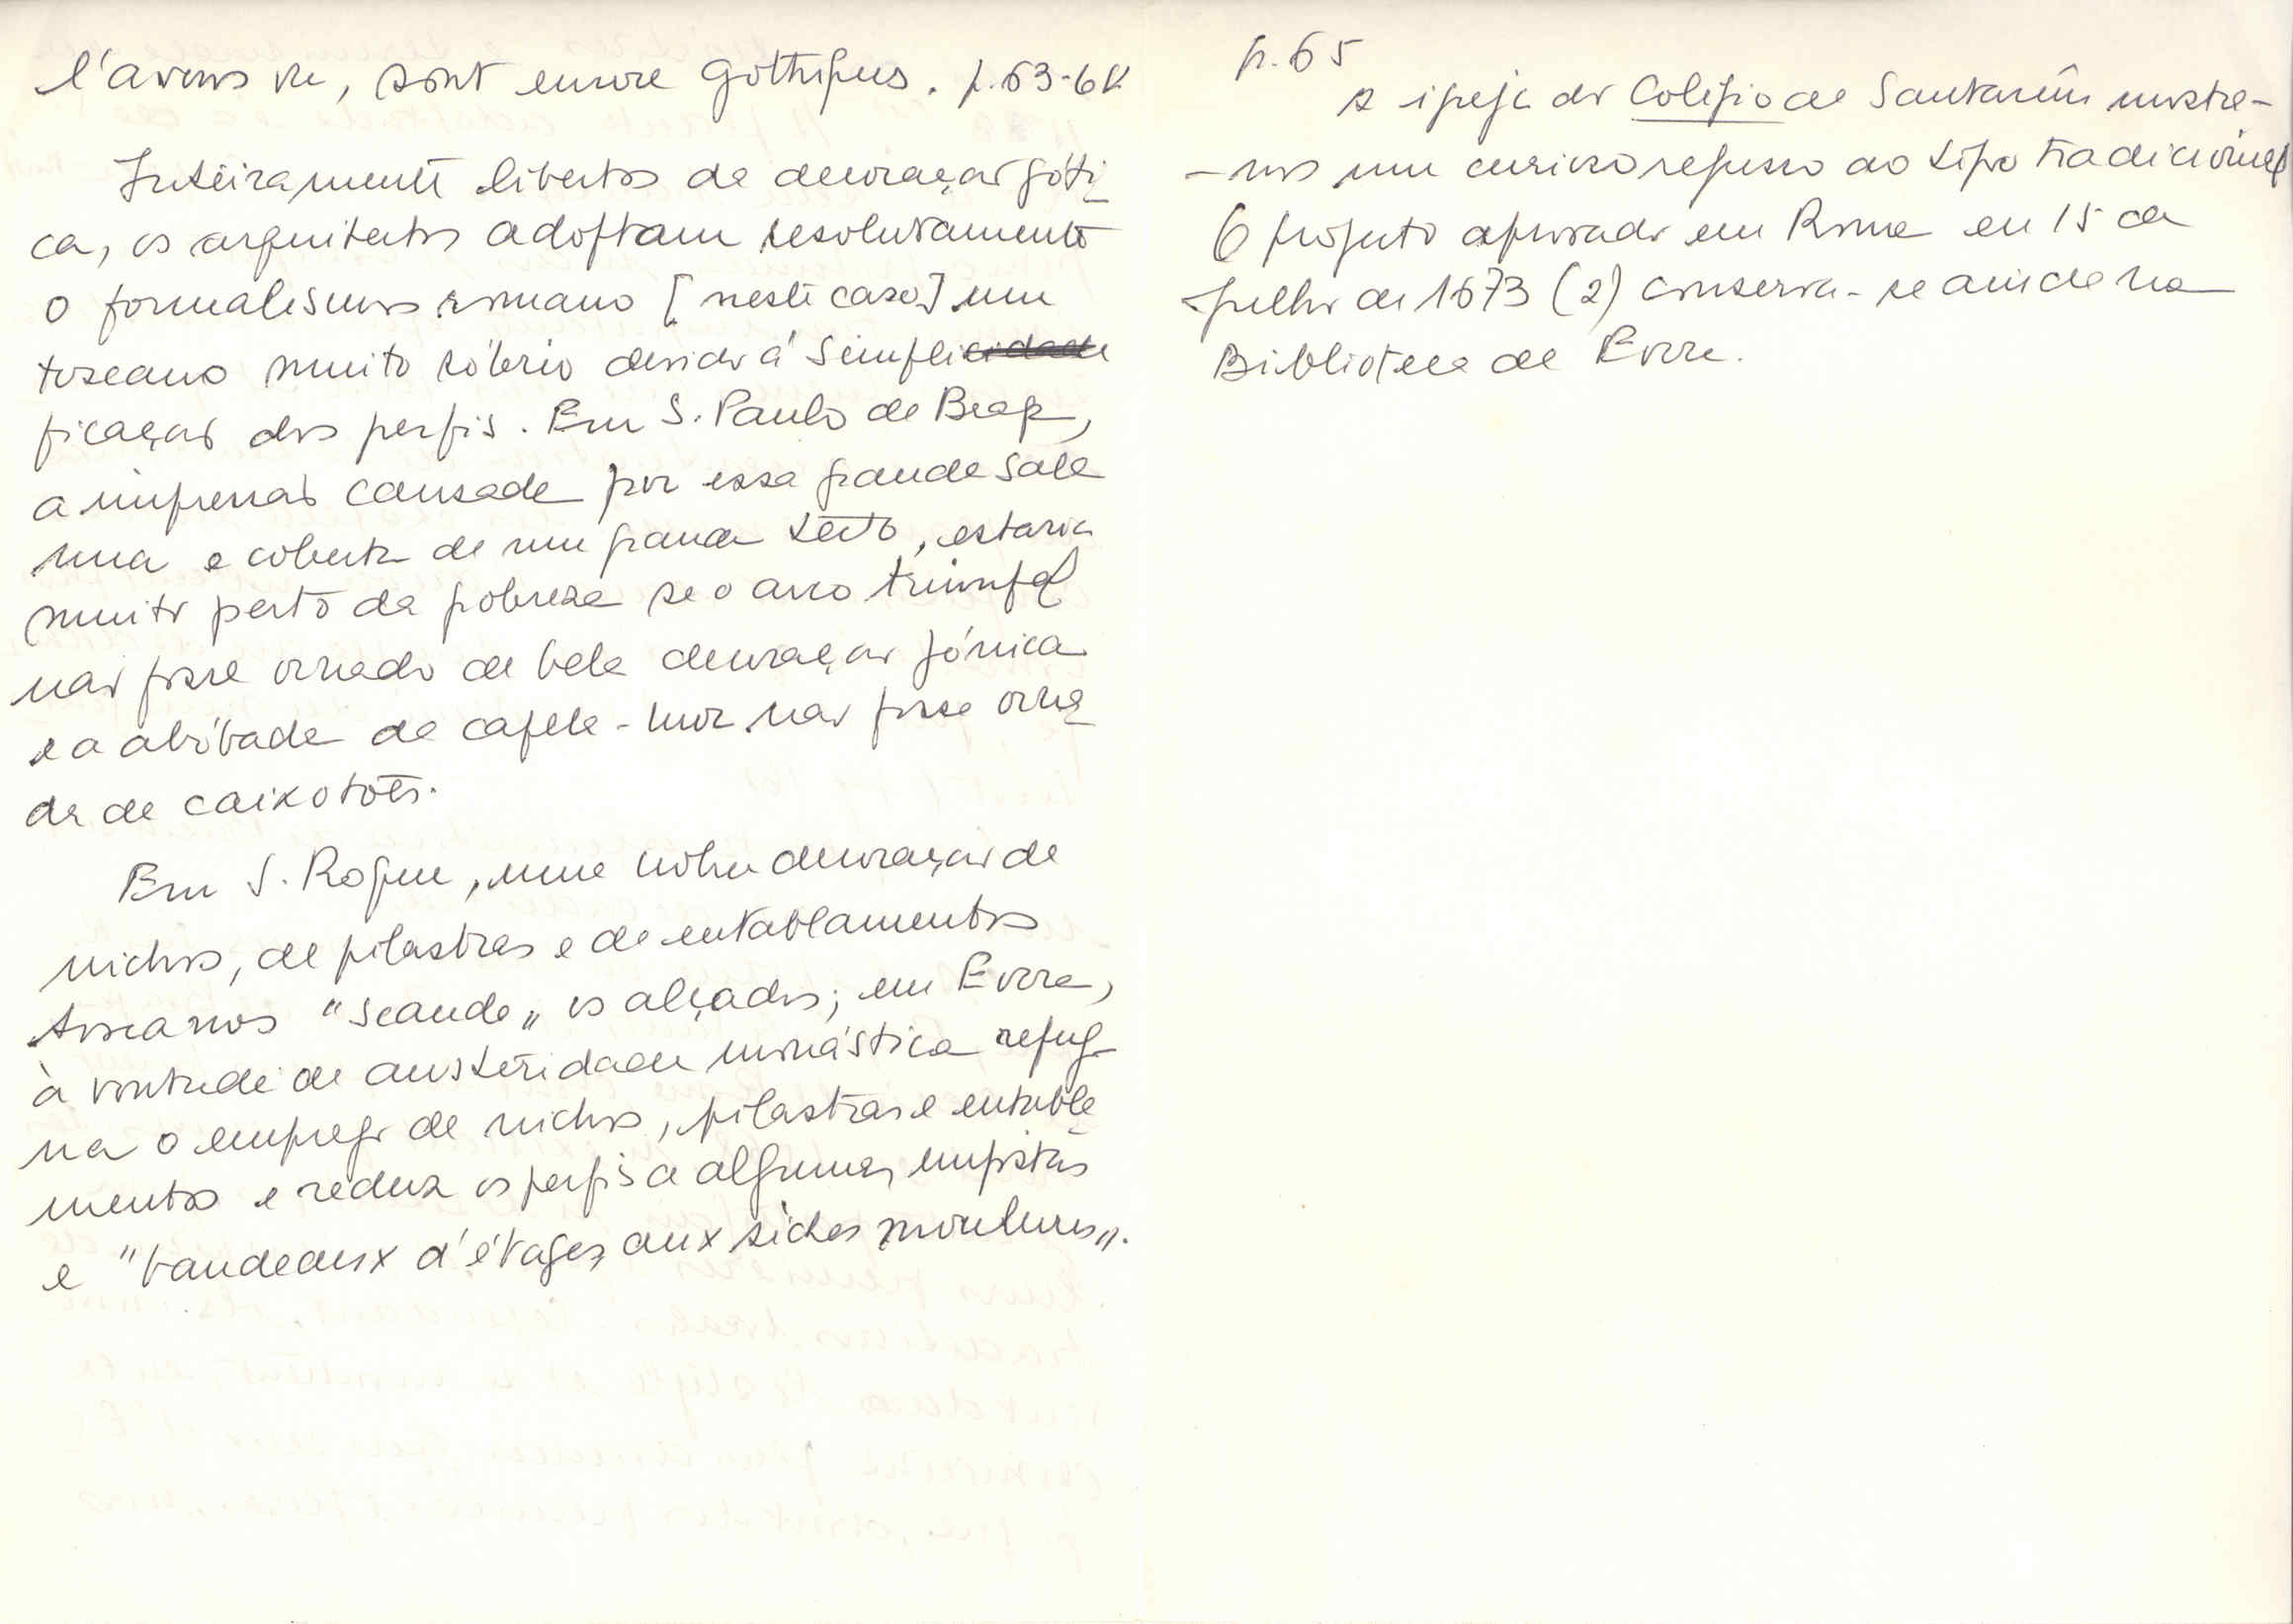 l'avons vu, sont encore gothiques. p. 63-64
Inteiramente libertos da decoração góti
ca, os arquitectos adoptam resolutamente
o formalismo romano [neste caso] um
toscano muito sóbrio devido á simplicidade
ficação dos perfis. Em S. Paulo de Braga,
a impressão causada por essa grande sala
nua e coberta de um grande tecto, estaria
muito perto da pobreza se o arco triunfal
não fosse ornado de bela decoração jónica
e a abóbada da capela-mor não fosse orna
da de caixotões.
Em S. Roque, uma nobre decoração de
nichos, de pilastras e de entablamentos
toscanos "scande" os alçados; em Evora,
à vontade de austeridade monástica repug-
na o emprego de nichos, pilastras e entabla
mentos e reduz os perfis a algumas impostas
e "bandeaux d'étages aux sèches moulures".
p. 65
A igreja do Colegio de Santarém mostra-
-nos um curioso regresso ao tipo tradicional
O projecto aprovado em Roma em 15 de
Julho de 1673 (2) conserva-se ainda na
Biblioteca de Evora.